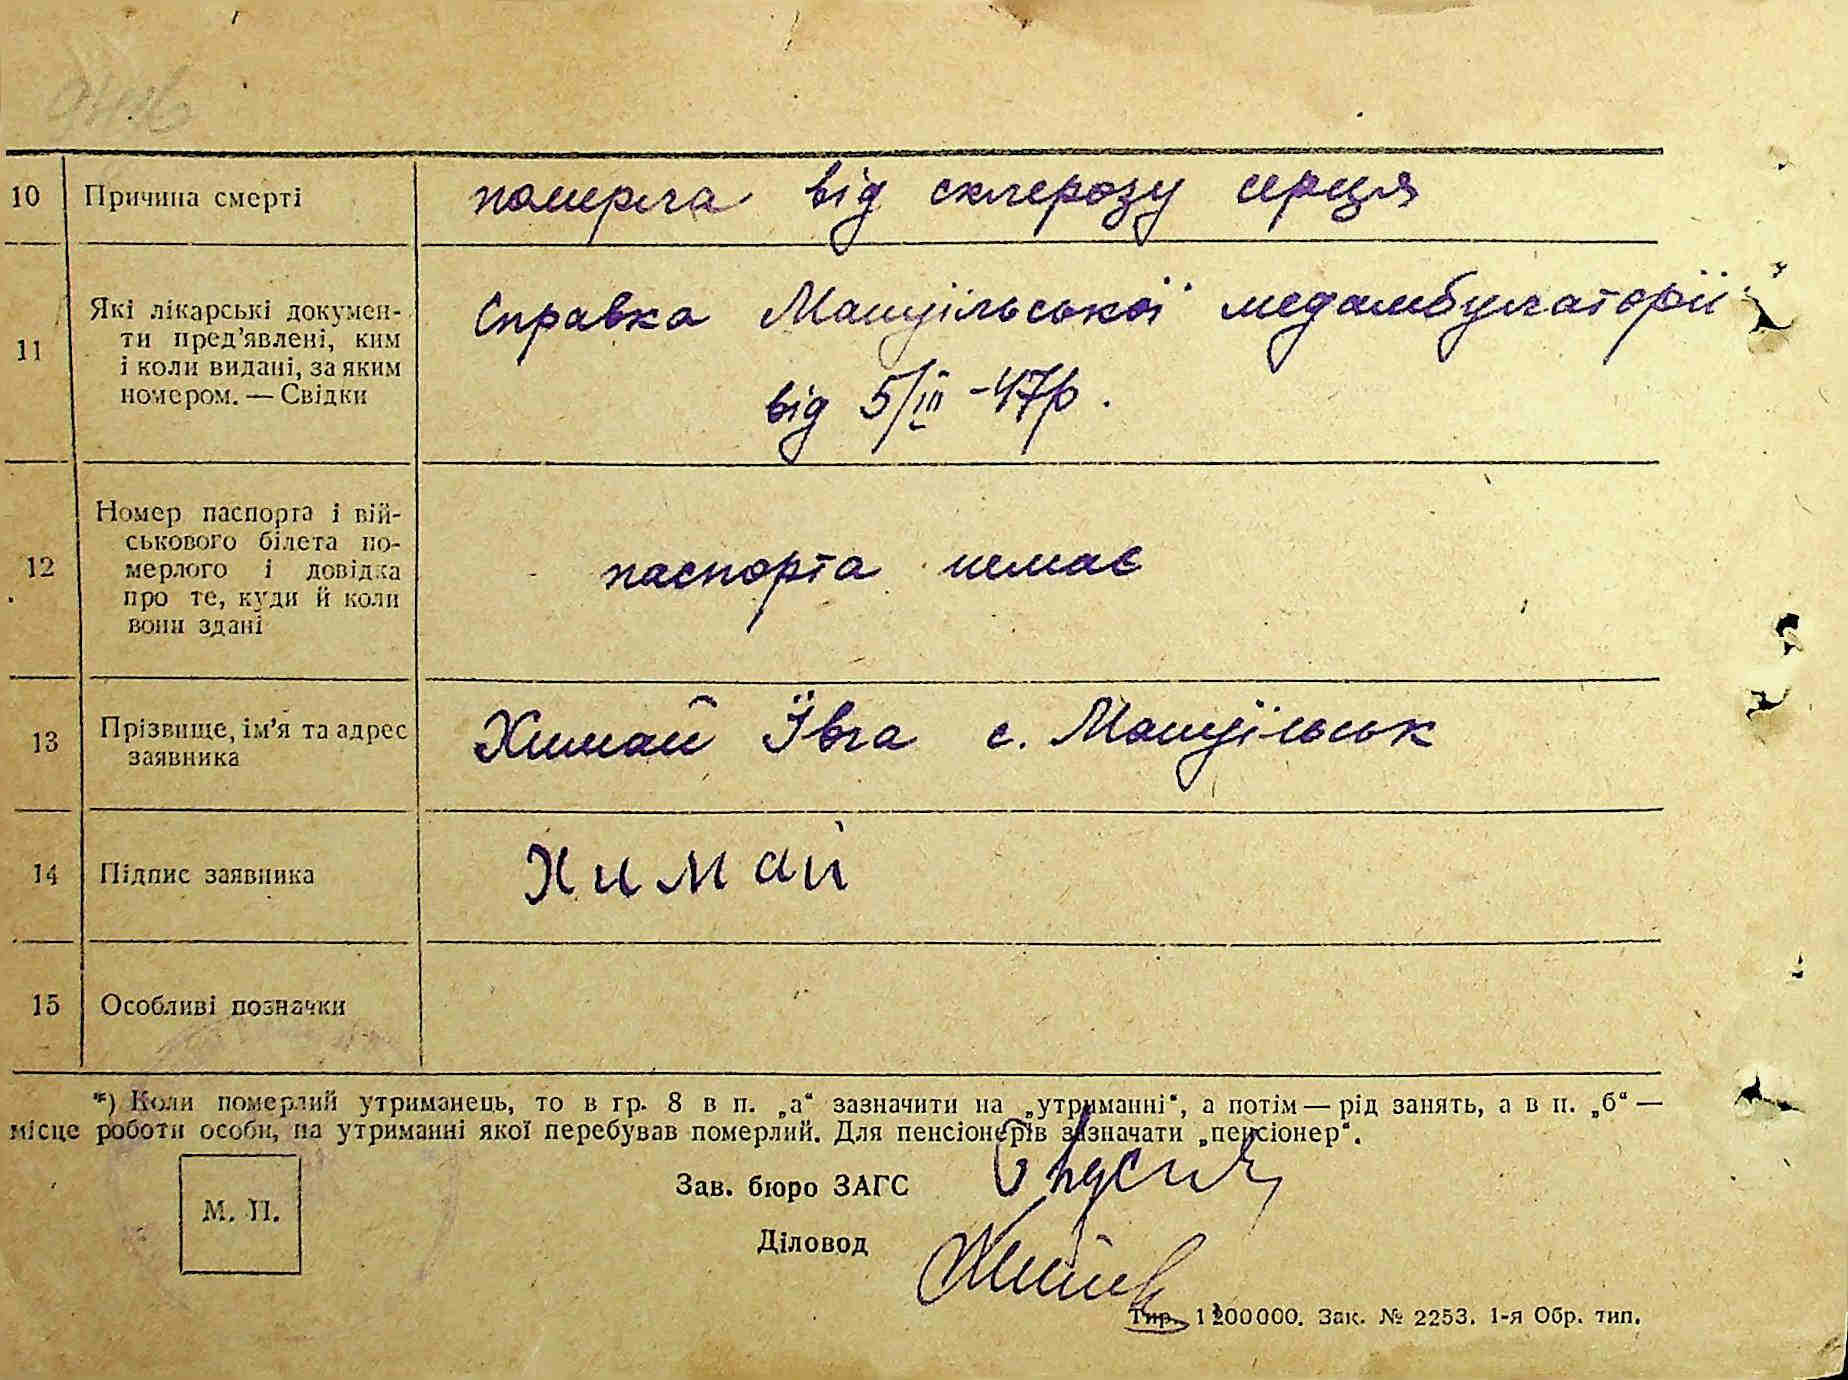 10 Причина смерті померла від склерозу серця
11 Які лікарські докумен-
ти пред’явлені, ким
і коли видані, за яким
номером. — Свідки
Справка Мащуільської медамбулаторії
від 5/III -47р.
12 Номер паспорта і вій-
ськового білета по-
мерлого і довідка
про те, куди й коли
вони здані
паспорта немає
13 Прізвище, ім’я та адрес
заявника
Химай Ївга с. Мащуїльськ
14 Підпис заявника Химай
15 Особливі позначки
*) Коли померлий утриманець, то в гр. 8 в п. „а“ зазначити на „утриманні“, а потім — рід занять, а в п. „б“ —
місце роботи особи, на утриманні якої перебував померлий. Для пенсіонерів зазначати „пенсіонер“.
Зав. бюро ЗАГС
М. П.
Діловод
Тир. 1200000. Зак. № 2253. 1-я Обр. тип.